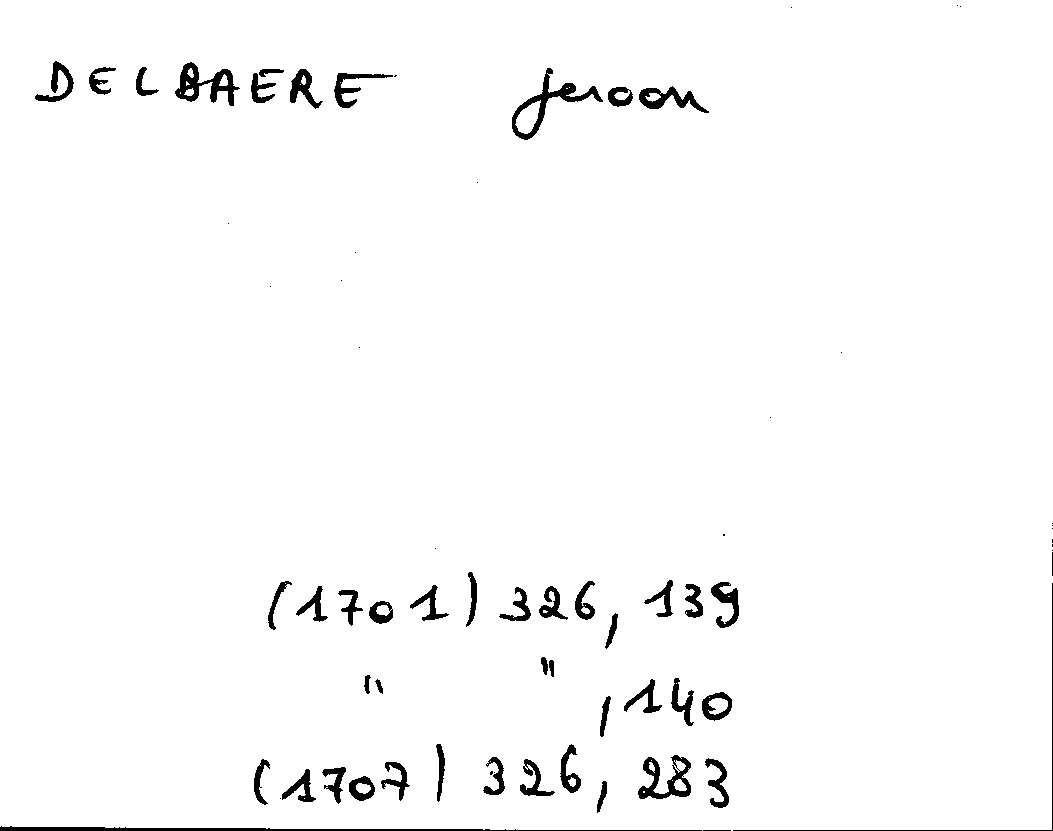 DELBAERE Jeroon
(1701) 326, 139
" " , 140
(1707) 326, 283